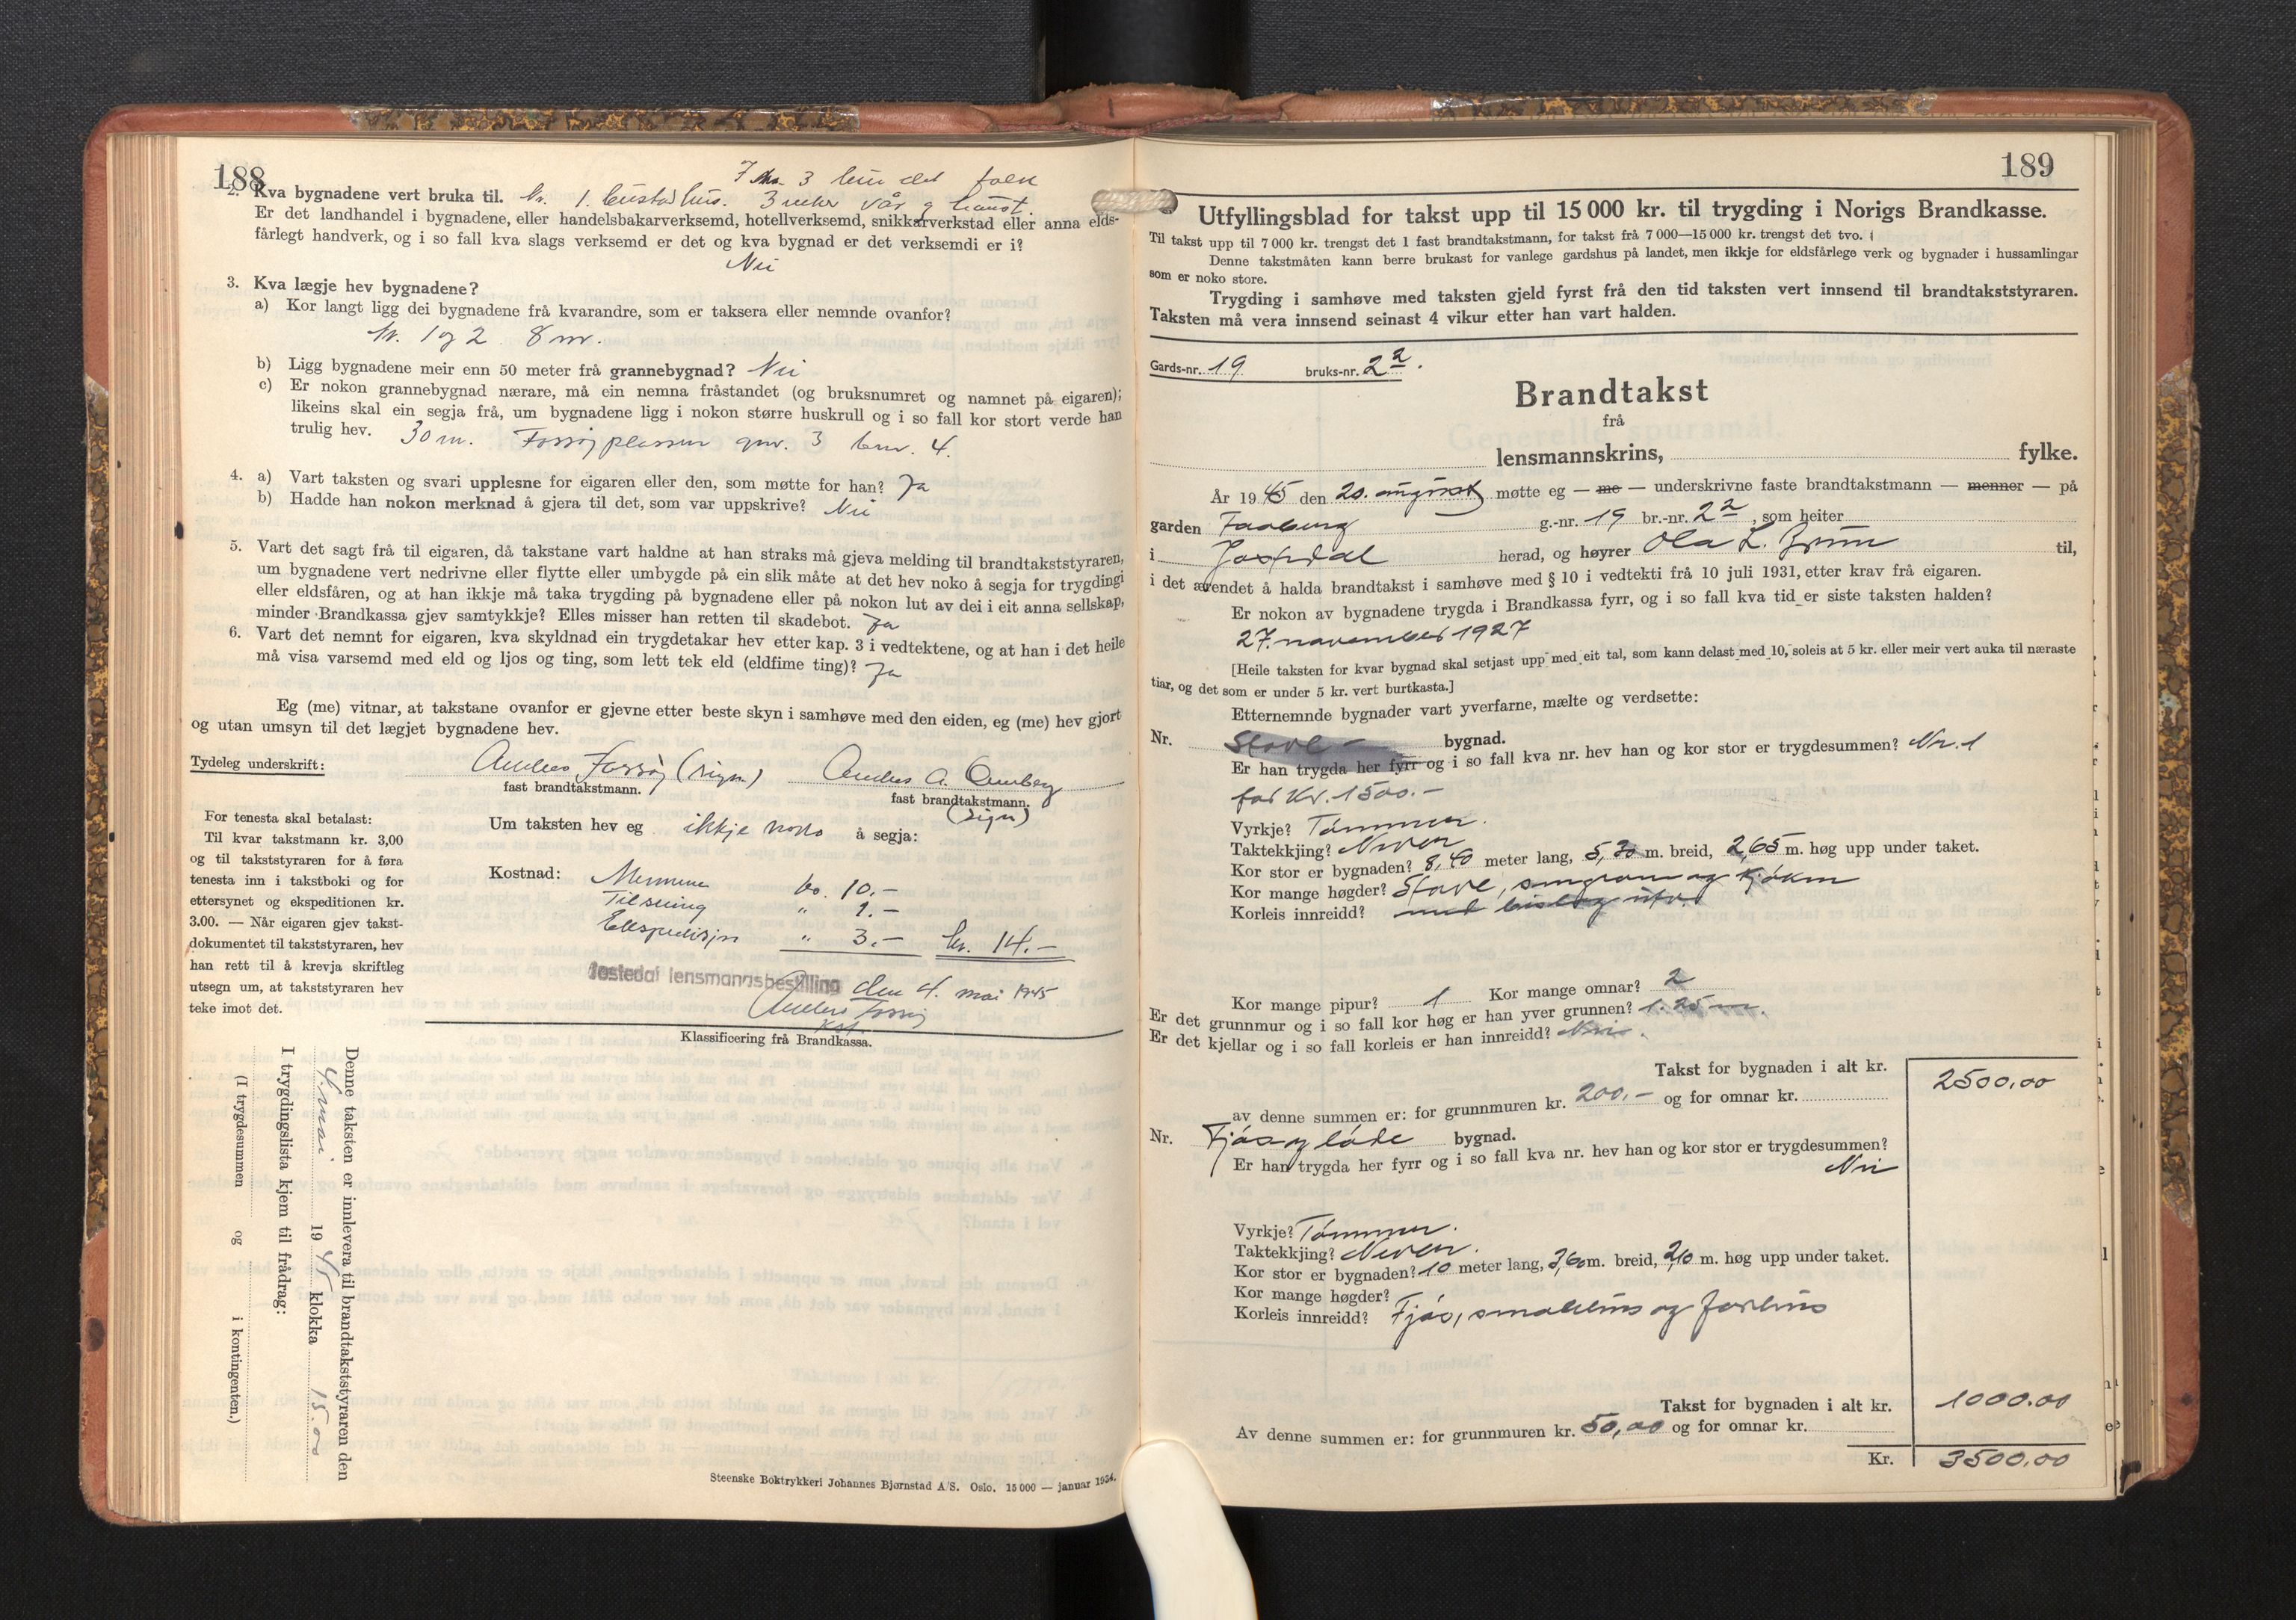 188
2. Kva bygnadene vert bruka til. Nr. 1. bustadhus. 3 veker vår og haust.
I Nr. 3 folk
Er det landhandel i bygnadene, eller handelsbakarverksemd, hotellverksemd, snikkarverkstad eller anna elds-
fårlegt handverk, og i so fall kva slags verksemd er det og kva bygnad er det verksemdi er i?
Nei
3. Kva lægje hev bygnadene?
a) Kor langt ligg dei bygnadene frå kvarandre, som er taksera eller nemnde ovanfor?
Nr. 1 og 2 8 m.
b) Ligg bygnadene meir enn 50 meter frå grannebygnad? Nei
c) Er nokon grannebygnad nærare, må ein nemna fråstandet (og bruksnumret og namnet på eigaren);
likeins skal ein segja frå, um bygnadene ligg i nokon større huskrull og i so fall kor stort verde han
trulig hev. 30 m. gnr. 3 bnr. 4.
4. a) Vart taksten og svari upplesne for eigaren eller den, som møtte for han? Ja
b) Hadde han nokon merknad å gjera til det, som var uppskrive? Nei
5. Vart det sagt frå til eigaren, då takstane vart haldne at han straks må gjeva melding til brandtakststyraren,
um bygnadene vert nedrivne eller flytte eller umbygde på ein slik måte at det hev noko å segja for trygdingi
eller eldsfåren, og at han ikkje må taka trygding på bygnadene eller på nokon lut av dei i eit anna sellskap,
minder Brandkassa gjev samtykkje? Elles misser han retten til skadebot. Ja
6. Vart det nemnt for eigaren, kva skyldnad ein trygdetakar hev etter kap. 3 i vedtektene, og at han i det heile
må visa varsemd med eld og ljos og ting, som lett tek eld (eldfime ting)? Ja
Eg (me) vitnar, at takstane ovanfor er gjevne etter beste skyn i samhøve med den eiden, eg (me) hev gjort
og utan umsyn til det lægjet bygnadene hev.
Tydeleg underskrift: Anders (sign) Anders A.
fast brandtakstmann. fast brandtakstmann.
(sign)
For tenesta skal betalast:
Til kvar takstmann kr. 3,00
og til takststyraren for å føra
tenesta inn i takstboki og for
ettersynet og ekspeditionen kr.
3.00. — Når eigaren gjev takst-
dokumentet til takststyraren, hev
han rett til å krevja skriftleg
utsegn um, at takststyraren hev
teke imot det.
Um taksten hev eg ikkje noko å segja:
Kostnad: Mennene kr. 10.-
Tilseiing " 1.-
Ekspedisjon " 3.- kr. 14.-
Jostedal lensmannsbestilling den 4. mai 1945
Anders
Kst.
Klassificering frå Brandkassa.
Denne taksten er innlevera til brandtakststyraren den
4. mai 1945 klokka 15.00
I trygdingslista kjem til frådrag:
(I trygdesummen og i kontingenten.)
Steenske Boktrykkeri Johannes Bjørnstad A/S. Oslo. 15 000 — januar 1934.
189
Utfyllingsblad for takst upp til 15 000 kr. til trygding i Norigs Brandkasse.
Til takst upp til 7 000 kr. trengst det 1 fast brandtakstmann, for takst frå 7 000—15 000 kr. trengst det tvo.
Denne takstmåten kann berre brukast for vanlege gardshus på landet, men ikkje for eldsfårlege verk og bygnader i hussamlingar
som er noko store.
Trygding i samhøve med taksten gjeld fyrst frå den tid taksten vert innsend til brandtakststyraren.
Taksten må vera innsend seinast 4 vikur etter han vart halden.
Gards-nr. 19 bruks-nr. 2 2.
Brandtakst
frå
lensmannskrins, fylke.
År 1945 den 20. august møtte eg — me — underskrivne faste brandtakstmann — menner — på
garden Faaberg g.-nr. 19 br.-nr. 2 2, som heiter
i Jostedal herad, og høyrer Ola L. til,
i det ærendet å halda brandtakst i samhøve med § 10 i vedtekti frå 10 juli 1931, etter krav frå eigaren.
Er nokon av bygnadene trygda i Brandkassa fyrr, og i so fall kva tid er siste taksten halden?
27. november 1927
[Heile taksten for kvar bygnad skal setjast upp med eit tal, som kann delast med 10, soleis at 5 kr. eller meir vert auka til næraste
tiar, og det som er under 5 kr. vert burtkasta.]
Etternemnde bygnader vart yverfarne, mælte og verdsette:
Nr. Stove - bygnad.
Er han trygda her fyrr og i so fall kva nr. hev han og kor stor er trygdesummen? Nr. 1
for Kr. 1500.-
Vyrkje? Tømmer.
Taktekkjing? Never
Kor stor er bygnaden? 8,40 meter lang, 5,30 m. breid, 2,65 m. høg upp under taket.
Kor mange høgder? Stove, sengrom og kjøken
Korleis innreidd? med bislag
Kor mange pipur? 1 Kor mange omnar? 2
Er det grunnmur og i so fall kor høg er han yver grunnen? 1.25 m.
Er det kjellar og i so fall korleis er han innreidd? Nei.
Takst for bygnaden i alt kr. 2500,00
av denne summen er: for grunnmuren kr. 200,- og for omnar kr.
Nr. Fjøs og løde bygnad.
Er han trygda her fyrr og i so fall kva nr. hev han og kor stor er trygdesummen?
Nei
Vyrkje? Tømmer.
Taktekkjing? Never.
Kor stor er bygnaden? 10 meter lang, 3,60 m. breid, 2,10 m. høg upp under taket.
Kor mange høgder?
Korleis innreidd? Fjøs, smalehus og forhus
Takst for bygnaden i alt kr. 1000.00
Av denne summen er: for grunnmuren kr. 50,00 og for omnar kr.
Kr. 3500.00